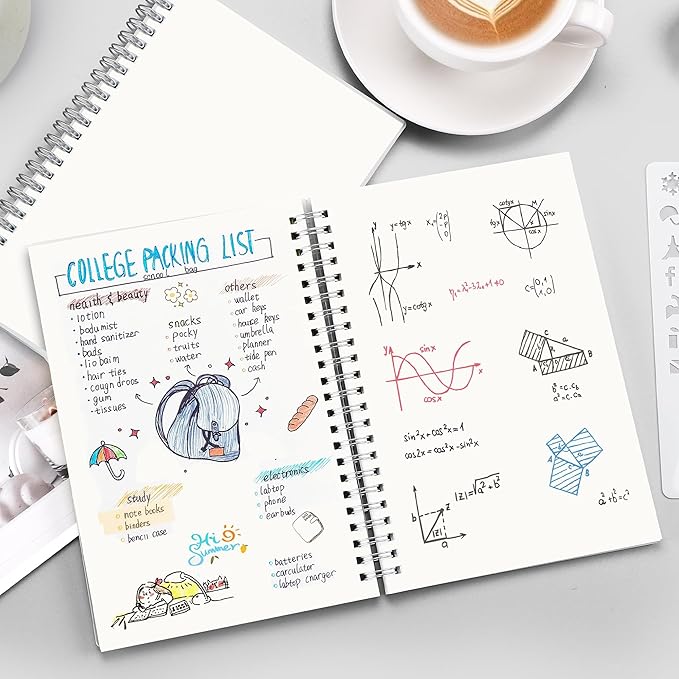 COLLEGE PACKING LIST
scnool bag
nealth & beauty
lotion
bodu mist
hand sanitizer
bads
lio baim
hair ties
cougn droos
gum
tissues
snacks
pocky
truits
water
others
wallet
car keys
house keys
umbrella
planner
tide pen
cash
study
note books
binders
bencil case
electronics
labtop
phone
earbuds
batteries
carculator
labtop charger
Hi
Summer
y
y=tgx
x
y=ctgx
cotgx
tgx
M
sinx
cosx
C=(0,1
x,0)
y
sinx
x
cosx
sin²x+cos²x=1
cos2x=cos²x-sin²x
C
a
A
B
b²=c.cb
a²=c.ca
b
z
|z|
a
|z|=√a²+b²
C
A
B
a²+b²=c²